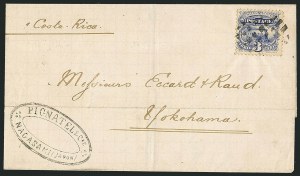 "Costa Rica"
POSTAGE
3
Messieurs Eccard & Raud.
Yokohama.
PIGNATEL & Cº
NAGASAKI (Japan)